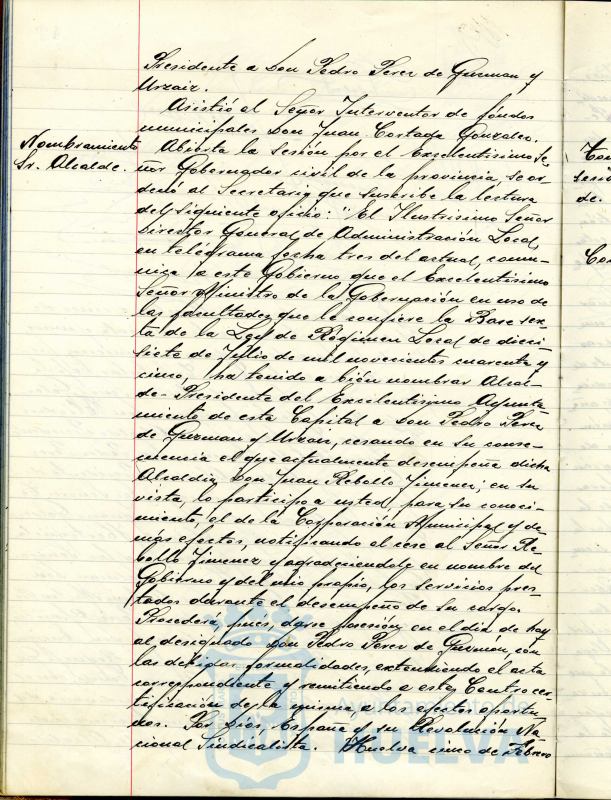 Presidente a Don Pedro Perez de Guzman y
Urzaiz.
Asistió el Señor Interventor de fondos
municipales Don Juan Cortada Gonzalez.
Nombramiento
Sr. Alcalde.
Abierta la sesión por el Excelentisimo Se-
ñor Gobernador civil de la provincia, se or-
denó al Secretario que suscribe la lectura
del siguiente oficio: "El Ilustrisimo Señor
Director General de Administración Local,
en telégrama fecha tres del actual, comu-
nica a este Gobierno que el Excelentisimo
Señor Ministro de la Gobernación en uso de
las facultades que le confiere la Base sex-
ta de la Ley de Régimen Local de dieci-
siete de Julio de mil novecientos cuarenta y
cinco, ha tenido a bién nombrar Alcal-
de-Presidente del Excelentisimo Ayunta
miento de esta Capital a Don Pedro Perez
de Guzman y Urzaiz, cesando en su conse-
cuencia el que actualmente desempeña dicha
Alcaldia, Don Juan Rebollo Jimenez; en su
vista, lo participo a usted, para su conoci-
miento, el de la Corporación Municipal y de-
mas efectos, notificando el cese al Señor Re-
bollo Jimenez y agradeciendole en nombre del
Gobierno y del mio propio, los servicios pres-
tados durante el desempeño de su cargo.
Procedera, pues, darse posesión en el dia de hoy
al designado Don Pedro Perez de Guzman, con
las debidas formalidades, extendiendo el acta
correspondiente y remitiendo a este Centro cer-
tificación de la misma a los efectos oportu-
nos. Por Dios, España y su Revolución Na
cional Sindicalista. Huelva cinco de Febrero
de.
HUELVA